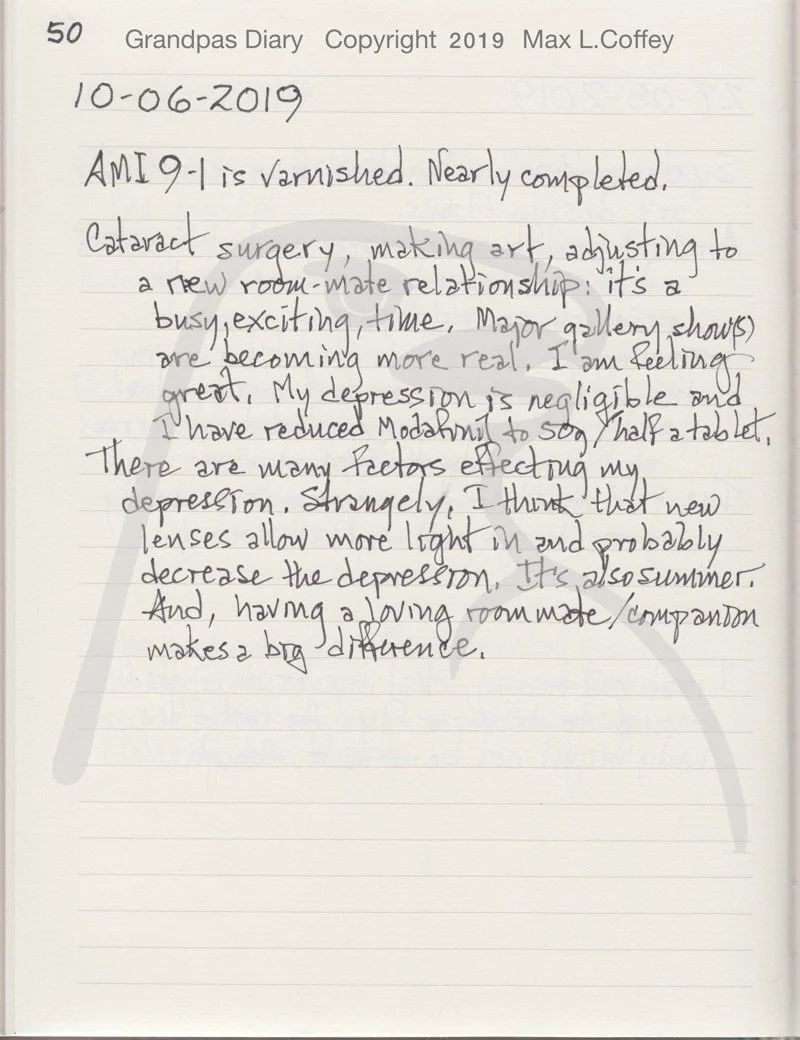 50 Grandpas Diary Copyright 2019 Max L.Coffey
10-06-2019
AMI 9-1 is varnished. Nearly completed.
Cataract surgery, making art, adjusting to
a new room-mate relationship: it's a
busy, exciting, time. Major gallery show(s)
are becoming more real. I am feeling
great. My depression is negligible and
I have reduced Modafinil to 50g/half a tablet.
There are many factors effecting my
depression. Strangely, I think that new
lenses allow more light in and probably
decrease the depression. It's also summer.
And, having a loving roommate/companion
makes a big difference.